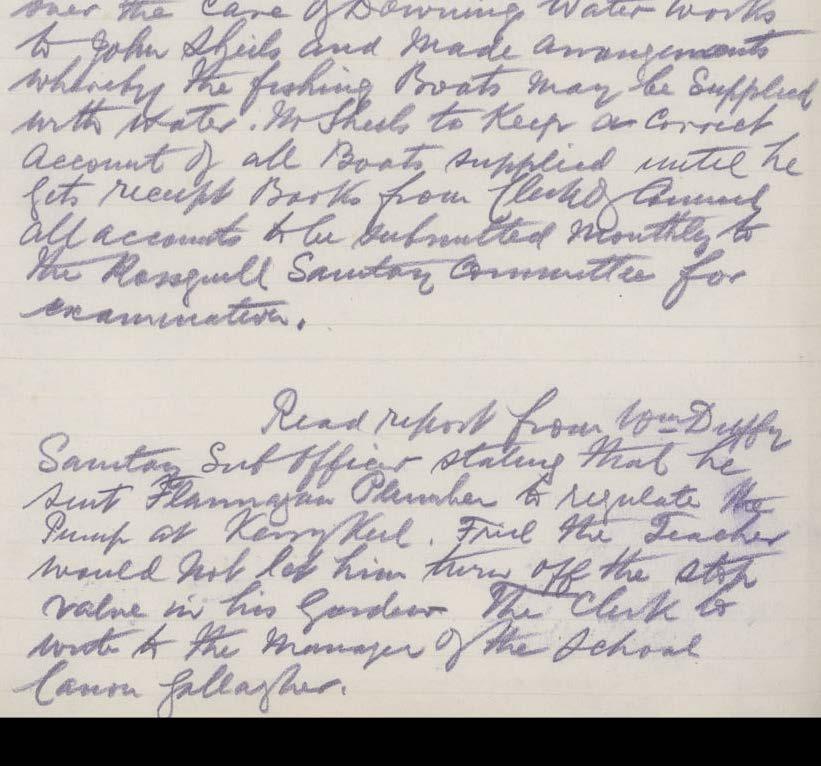 over the Care of Downing Water works
to John Sheils and Made arrangements
whereby the fishing Boats may be Supplied
with water. Mr Sheils to Keep a Correct
account of all Boats supplied until he
gets receipt Books from Clerk of Council
all accounts to be submitted Monthly to
the Rosguill Sanitary Committee for
examination.
Read report from Wm Duffy
Sanitary Sub Officer stating that he
sent Flannagan Plumber to regulate the
Pump at Kerrykeel. Friel the Teacher
would Not let him turn off the stop
valve in his Garden The Clerk to
write to the Manager of the School
Canon Gallagher.